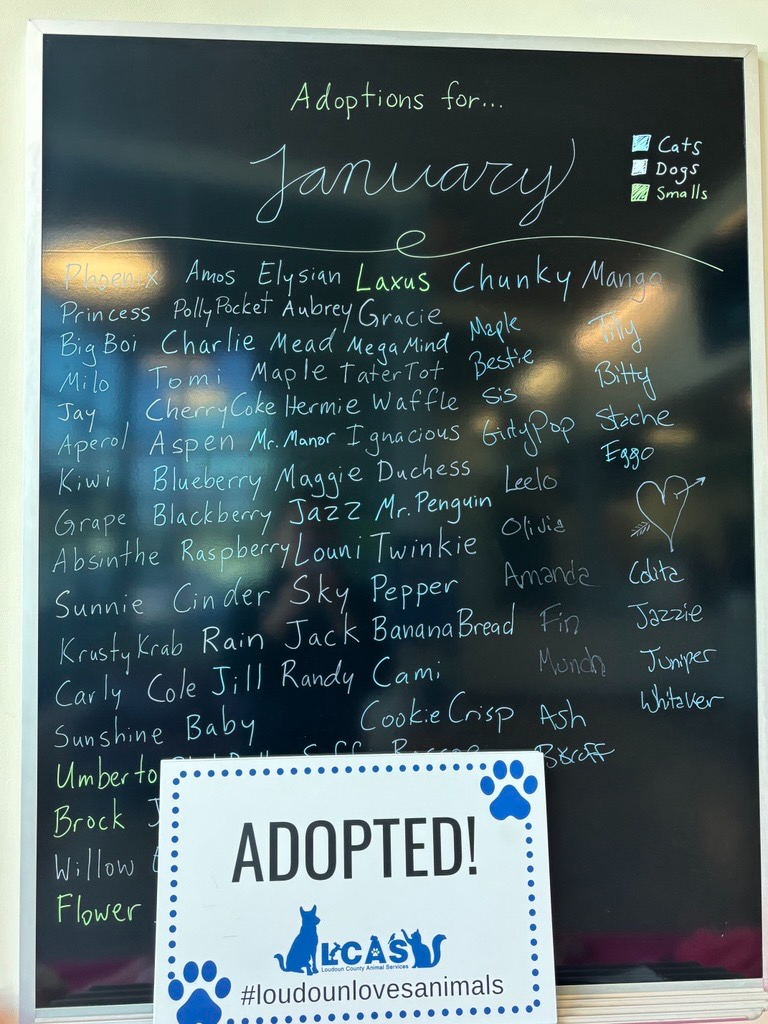 Adoptions for...
January
Cats
Dogs
Smalls
Phoenix Amos Elysian Laxus Chunky Mango
Princess PollyPocket Aubrey Gracie
Big Boi Charlie Mead Mega Mind Maple Tilly
Milo Tomi Maple TaterTot Bestie Bitty
Jay CherryCoke Hermie Waffle Sis Stache
Aperol Aspen Mr. Manor Ignacious GirlyPop Eggo
Kiwi Blueberry Maggie Duchess Leelo
Grape Blackberry Jazz Mr. Penguin Olivia
Absinthe Raspberry Louni Twinkie
Sunnie Cinder Sky Pepper Amanda Colita
KrustyKrab Rain Jack BananaBread Fin Jazzie
Carly Cole Jill Randy Cami Munch Juniper
Sunshine Baby CookieCrisp Ash Whitaker
Umberto
Brock
Willow
Flower
ADOPTED!
LCAS
Loudoun County Animal Services
#loudounlovesanimals